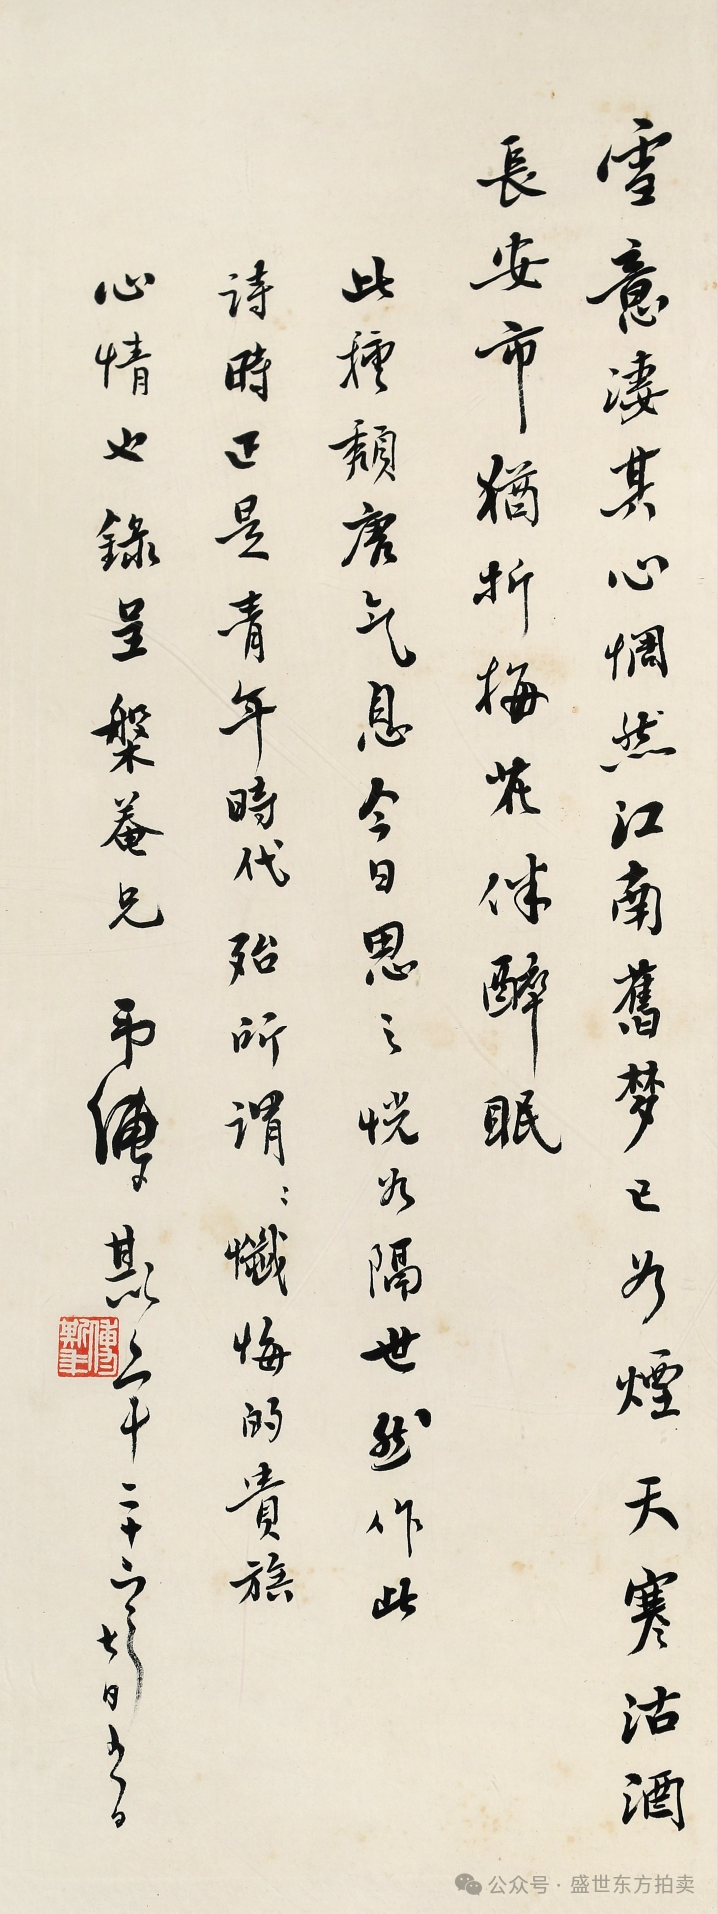 雪意淒其心惘然江南舊梦已如煙天寒沽酒
長安市猶折梅花伴醉眠
此種頹唐气息今日思之恍如隔世然作此
詩時正是青年時代殆所謂〻懺悔的貴族
心情也錄呈槃菴兄 弟傅斯年二十六年七月日
傅斯年
公众号·盛世东方拍卖